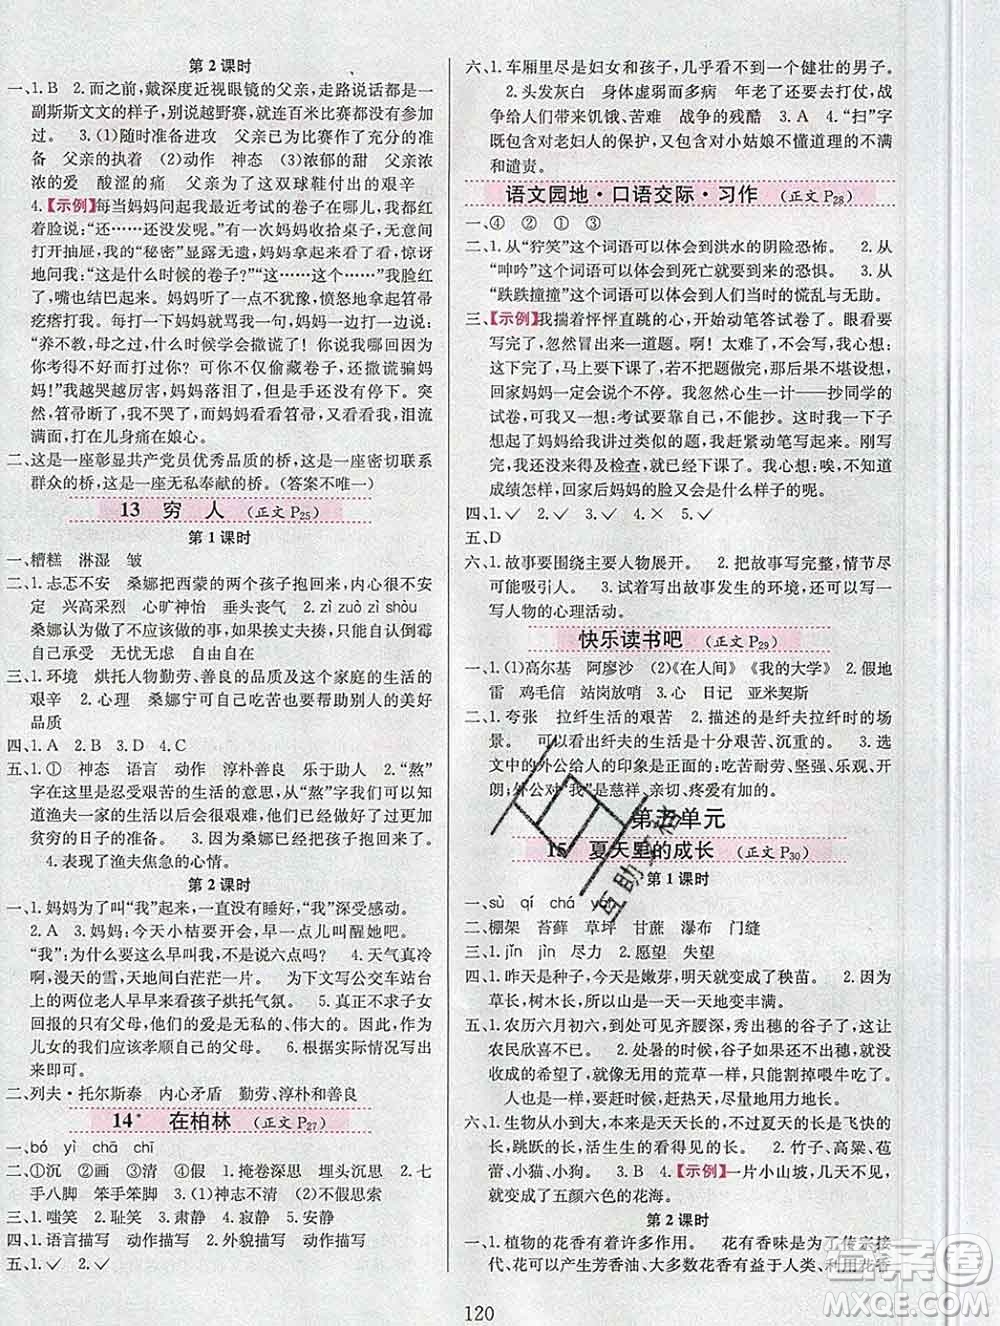 第2课时
一、1. B　2. 而之前,戴深度近视眼镜的父亲,走路说话都是一
副斯斯文文的样子,别说越野赛,就连百米比赛都没有参加
过。　3. (1)随时准备进攻　父亲已为比赛作了充分的准
备　父亲的执着　(2)动作　神态　(3)浓郁的甜　父亲浓
浓的爱　酸涩的痛　父亲为这双球鞋付出的艰辛
4.【示例】每当妈妈问起我最近考试的卷子在哪儿,我都红
着脸说:“还……还没发。”有一次妈妈收拾桌子,无意间
打开抽屉,我的“秘密”显露无遗。妈妈瞪大了眼睛,惊讶
地问我:“这是什么时候的卷子?”“这……这……”我脸红了
了,嘴也结巴了。妈妈一点不犹豫,愤怒地拿起笤帚
疙瘩打我。每打一下妈妈就骂我一句,妈妈一边打一边说:
“养不教,母之过,什么时候你学会撒谎了?你可以不
考得好可不能不努力,你更不可能偷藏卷子,撒谎骗妈
妈!”我越哭越厉害,妈妈落泪了,但她还没有停下。突
然,笤帚断了,我不哭了,妈妈看看笤帚,再看看我,泪流
满面。打在儿身痛在娘心。
二、这是一座彰显共产党员优秀品质的桥,这是一座密切联系
群众的桥,这是一座无私奉献的桥。(答案不唯一)
13　穷　人　(正文P25)
第1课时
一、糟糕　淋湿　皱
二、1. 忐忑不安　桑娜把西蒙的两个孩子抱回来,内心很不安
定　兴高采烈　心旷神怡　垂头丧气　2. zì zuò zì shòu
桑娜认为做了不应该做的事,挨丈夫揍,只好自认倒霉
自言自语　无忧无虑　自由自在
三、1. 环境　烘托人物勤劳、善良的品质及这个家庭的生活的
艰辛　2. 心理　桑娜宁可自己吃苦也要帮助别人的美好
品质
四、1. A　2. B　3. D　4. C
五、1. ①　神态　语言　动作　淳朴善良　乐于助人　2. “熬”字
在这里是忍受艰苦的生活的意思,从“熬”字我们可以知
道渔夫一家的生活很艰苦,但渔夫已经作好为孩子过更加
贫穷的日子的准备。　3. 因为桑娜已经把孩子抱回来了。
4. 表现了渔夫焦急的心情。
第2课时
一、1. 妈妈为了叫“我”起来,一直没有睡好,“我”深受感动。
2. A　3. 妈妈:今天小桔要开会,早一点儿醒她吧。
“我”:为什么要这么早喊我,不是说六点吗?　4. 天气很冷
啊,漫天的雪,天地间白茫茫一片。　为下文写公交车站台
上的两位老人早早来看孩子烘托气氛。　5. 真正不求子女
回报的只有父母,他们的爱是无私的、伟大的。因此,作为
儿女的我们应该孝顺自己的父母。　6. 根据实际情况写出
来即可。
二、列夫·托尔斯泰　内心矛盾　勤劳、淳朴和善良
14*　在柏林　(正文P27)
一、bó　yì　chā　chī
二、①沉　②画　③清　④假　1. 掩卷深思　浮想联翩　2. 七
手八脚　笨手笨脚　3. (1)神志不清　(2)不假思索
三、1. 嗤笑　2. 耻笑　3. 肃静　4. 寂静　5. 安静
四、1. 语言描写　动作描写　2. 外貌描写　动作描写
五、1. ✓　2. ✓
六、1. 车厢里尽是妇女和孩子,几乎看不到一个健壮的男子。
2. 头发灰白　身体虚弱而多病　年老了还要去打仗,战
争给人们带来饥饿、苦难　战争的残酷　3. A　4. “扫”字
既包含对老妇人的保护,又包含对小姑娘不懂道理的不满
和谴责。
语文园地·口语交际·习作　(正文P28)
一、④　②　①　③
二、1. 从“狞笑”这个词语可以体会到洪水的阴险恐怖。　2. 从
“呻吟”这个词语可以体会到死亡就要到来的恐惧。　3. 从
“跌跌撞撞”这个词语可以体会到人们当时的慌乱与无助。
三、【示例】我揣着怦怦直跳的心,开始动笔答试卷了。眼看要
写完了,忽然冒出来一道题。啊!太难了,不会写,我心想:
这下完了,马上要下课了,不会写怎么办?如果不堪设想,
回家妈妈一定会说个不停。我忽然心生一计——抄同学的
试卷,可我又一想:考试要靠自己,不能抄。这时我一下子
想起了妈妈给我讲过类似的题,我赶紧动笔写起来。刚写
完,我还没来得及检查,就已经下课了。我还是不知道
成绩怎样,回家后妈妈的脸又会是什么样子的呢?
四、1. ✓　2. ✓　3. ✓　4. ×　5. ✓
五、D
六、1. 故事要围绕主要人物展开。　2. 把故事写完整,情节尽
可能吸引人。　3. 试着写出故事发生的环境,还可以写一
写人物的心理活动。
快乐读书吧　(正文P29)
一、1. (1)高尔基　阿廖沙　(2)《在人间》　《我的大学》　2. 假地
雷　鸡毛信　站岗放哨　3. 心　日记　亚米契斯
二、1. 夸张　拉纤生活的艰苦　2. 描述的是纤夫拉纤时的场
景。　可以看出纤夫的生活是十分艰苦、沉重的。　3. 选
文中的外公给人的印象是正面的:吃苦耐劳、坚强、乐观、开
朗;外公对“我”是慈祥、亲切、疼爱有加的。
第五单元
15　夏天里的成长　(正文P30)
第1课时
一、sù　qí　chá　yán
二、棚架　苔藓　草坪　甘蔗　瀑布　门缝
三、1. jǐn　jìn　尽力　2. 愿望　失望
四、1. 昨天是种子,今天是嫩芽,明天就变成了秧苗。　2. 因为
草长,树木长,所以山是一天一天地变丰满。
五、1. 农历六月初六,到处可见齐腰深,秀出穗的谷子了,这让
农民欣喜不已。　2. 处暑的时候,谷子如果还没有成熟,收
成的希望就没有了,如喂牛用的荒草一样没有价值了。
人也是一样,要赶时候,赶热天,尽量地用力地长。
六、1. 生物从小到大,本来是天天长的,不过夏天的长是飞快的
长,跳跃的长,活生生的看得见的长。　2. 竹子、高粱、苞
蕾、小猫、小狗。　3. B　4.【示例】一片小山坡,几天不见,
就变成了五颜六色的花海。
第2课时
一、1. 植物的花香有着许多作用。　花有香味是为了传宗接
代、花可以产生芳香油、大多数花香有益于人类、利用花香
120
互助学精
答案圈
MXQE.COM